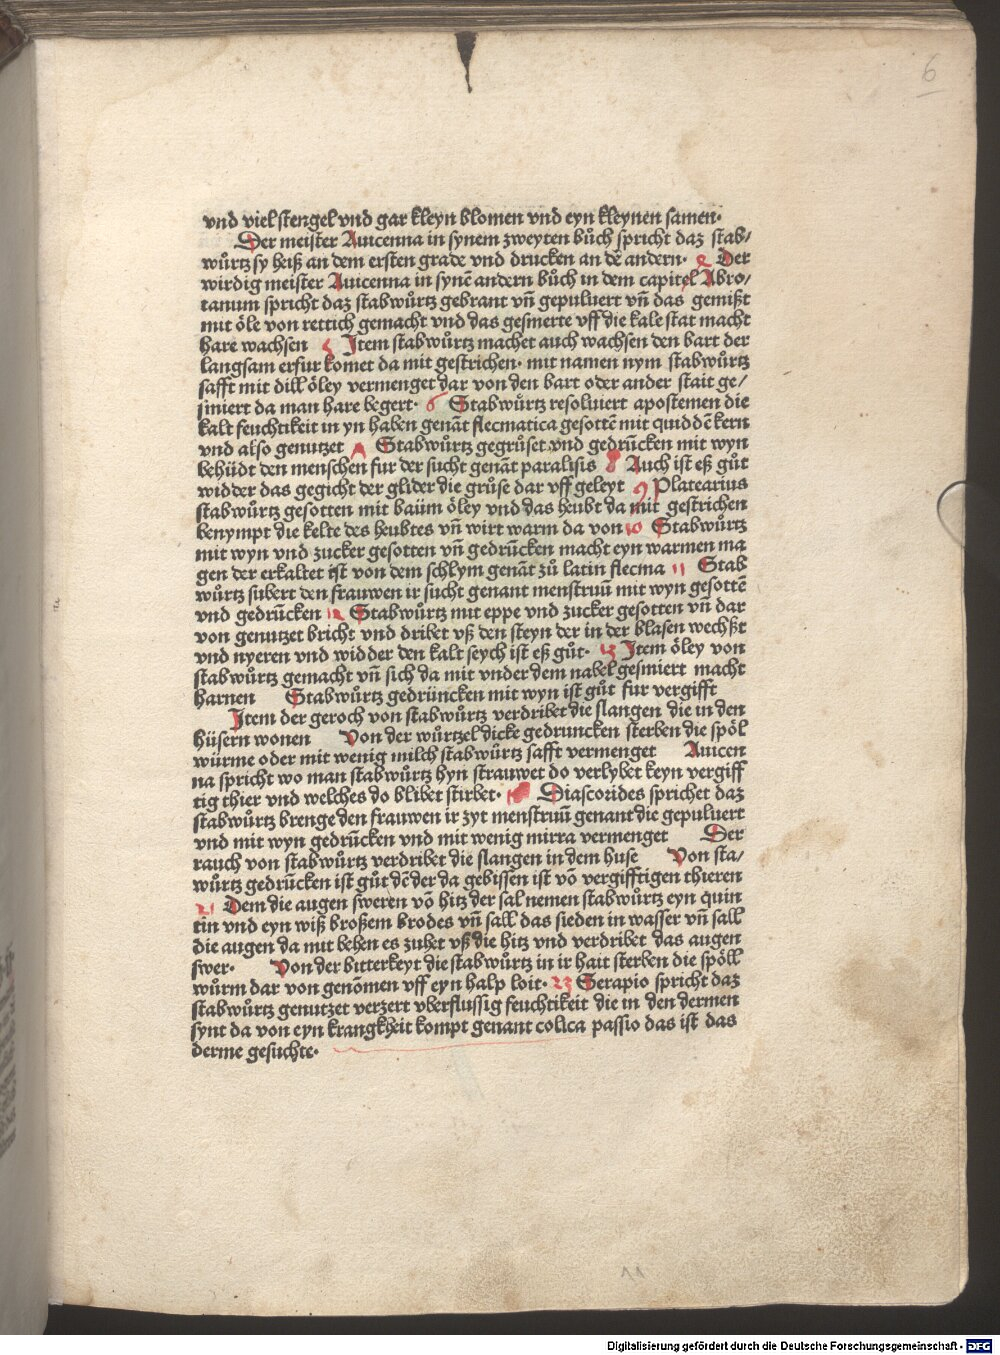 6
vnd viel stengel vnd gar kleyn blomen vnd eyn kleynen samen·
Der meister Auicenna in synem zweyten bůch spricht daz stab/
wůrtz sy heiß an dem ersten grade vnd drucken an dē andern· 2 Der
wirdig meister Auicenna in synē andern bůch in dem capitel Abro/
tanum spricht daz stabwůrtz gebrant vñ gepuluert vñ das gemißt
mit öle von rettich gemacht vnd das gesmerte vff die kale stat macht
hare wachsen 5 Item stabwůrtz machet auch wachsen den bart der
langsam erfur komet da mit gestrichen· mit namen nym stabwůrtz
safft mit dill öley vermenget dar von den bart oder ander stait ge/
smiert da man hare begert· 6 Stabwůrtz resoluiert apostemen die
kalt feuchtikeit in yn haben genāt flecmatica gesottē mit quiddē kern
vnd also genutzet Λ Stabwůrtz gegrůset vnd gedrūcken mit wyn
behüdt den menschen fur der sucht genāt paralisis 8 Auch ist eß gůt
widder das gegicht der glider die grůse dar vff geleyt 9 Platearius
stabwůrtz gesotten mit baüm öley vnd das heubt da mit gestrichen
benympt die kelte des heubtes vñ wirt warm da von 10 Stabwůrtz
mit wyn vnd zucker gesotten vñ gedrūcken macht eyn warmen ma
gen der erkaltet ist von dem schlym genāt zů latin flecma 11 Stab
wůrtz subert den frauwen ir sucht genant menstruū mit wyn gesottē
vnd gedrūcken 12 Stabwůrtz mit eppe vnd zucker gesotten vñ dar
von genutzet bricht vnd dribet vß den steyn der in der blasen wechßt
vnd nyeren vnd widder den kalt seych ist eß gůt· 13 Item öley von
stabwůrtz gemacht vñ sich da mit vnder dem nabel gesmiert macht
harnen Stabwůrtz gedrüncken mit wyn ist gůt fur vergifft
Item der geroch von stabwůrtz verdribet die slangen die in den
hüsern wonen Von der wůrtzel dicke gedruncken sterben die spöl
würme oder mit wenig milch stabwůrtz safft vermenget Auicen
na spricht wo man stabwůrtz hyn strauwet do verlybet keyn vergiff
tig thier vnd welches do blibet stirbet· Diascorides sprichet daz
stabwůrtz brenge den frauwen ir zyt menstruū genant die gepuluert
vnd mit wyn gedrūcken vnd mit wenig mirra vermenget Der
rauch von stabwůrtz verdribet die slangen in dem huse Von sta/
wůrtz gedrūcken ist gůt dē der da gebissen ist vō vergifftigen thieren
21 Dem die augen sweren vō hitz der sal nemen stabwůrtz eyn quin
tin vnd eyn wiß broßem brodes vñ sall das sieden in wasser vñ sall
die augen da mit behen es zuhet vß die hitz vnd verdribet das augen
swer· Von der bitterkeyt die stabwůrtz in ir hait sterben die spöll
würm dar von genōmen vff eyn halp loit· 23 Serapio spricht daz
stabwůrtz genutzet verzert vberflussig feuchtikeit die in den dermen
synt da von eyn krangkheit kompt genant colica passio das ist das
derme gesuchte·
11
Digitalisierung gefördert durch die Deutsche Forschungsgemeinschaft - DFG